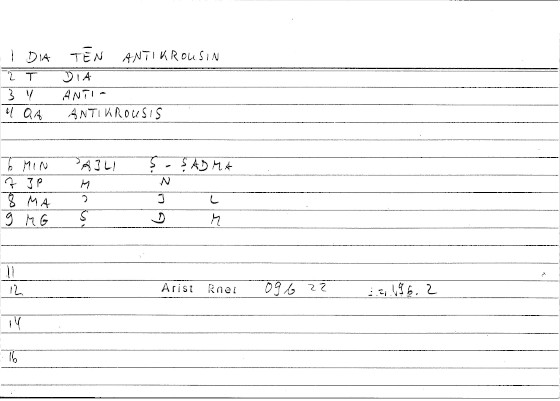 1 DIA TĒN ANTIKROUSIN
2 T DIA
3 4 ANTI-
4 QA ANTIKROUSIS
6 MIN ʾAJLI Ṣ - ṢADMA
7 JP M N
8 MA ʾ J L
9 MG Ṣ D M
11
12 Arist Rhet 09b 22
14
16